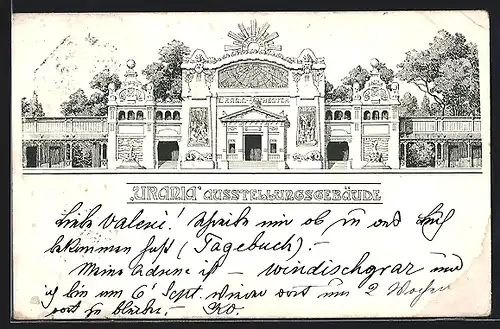 URANIA THEATER
"URANIA" AUSSTELLUNGSGEBÄUDE
Liebe Valerie! Schreibe mir ob du das
bekommen hast (Tagebuch). –
Meine Adresse ist – Windischgraz und
ich bin am 6 Sept. wieder dort um 2 Wochen
dort zu bleiben.